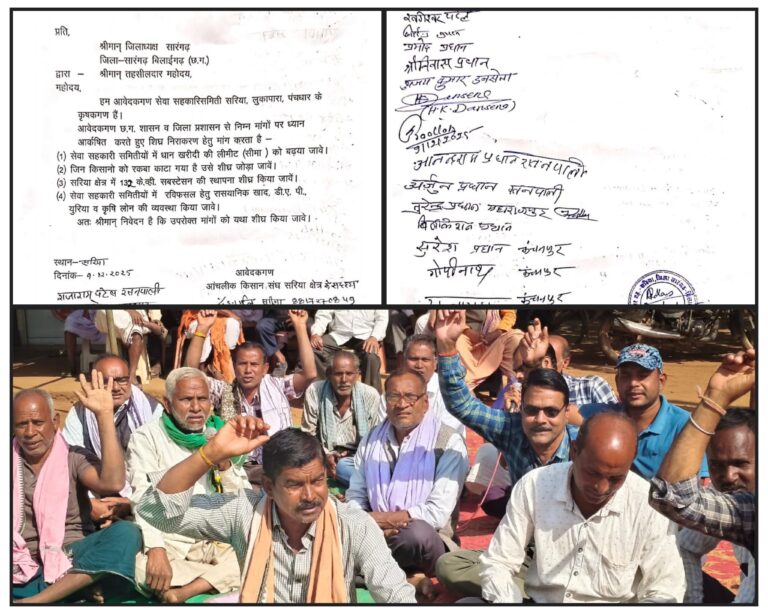 प्रति,
श्रीमान् जिलाध्यक्ष सारंगढ़
जिला-सारंगढ़ बिलाईगढ़ (छ.ग.)
द्वारा - श्रीमान् तहसीलदार महोदय,
महोदय,
हम आवेदकगण सेवा सहकारिसमिती सरिया, लुकापारा, पंचधार के
कृषकगण हैं।
आवेदकगण छ.ग. शासन व जिला प्रशासन से निम्न मांगों पर ध्यान
आर्कषित करते हुए शिघ्र निराकरण हेतु मांग करता है –
(1) सेवा सहकारी समितीयों में धान खरीदी की लीमीट (सीमा) को बढ़या जावे।
(2) जिन किसानो को रकबा काटा गया है उसे शीघ्र जोड़ा जावें।
(3) सरिया क्षेत्र में 132 के.व्ही. सबस्टेसन की स्थापना शीघ्र किया जावें।
(4) सेवा सहकारी समितीयों में रविफसल हेतु रासयानिक खाद, डी.ए. पी.,
युरिया व कृषि लोन की व्यवस्था किया जावे।
अतः श्रीमान् निवेदन है कि उपरोक्त मांगों को यथा शीघ्र किया जावे।
स्थान-सरिया
दिनांक- 9.12.2025
आवेदकगण
आंचलीक किसान संघ सरिया क्षेत्र
राजाराम पटेल रतनपाली
प्रमोद प्रधान
श्रीनिवास प्रधान
अजय कुमार डनसेना
(H.K. Dansena)
9/12/2025
आनंदराम प्रधान रतनपाली
अर्जुन प्रधान रतनपाली
सुरेश प्रधान कंचनपुर
गोपीनाथ कंचनपुर
कंचनपुर